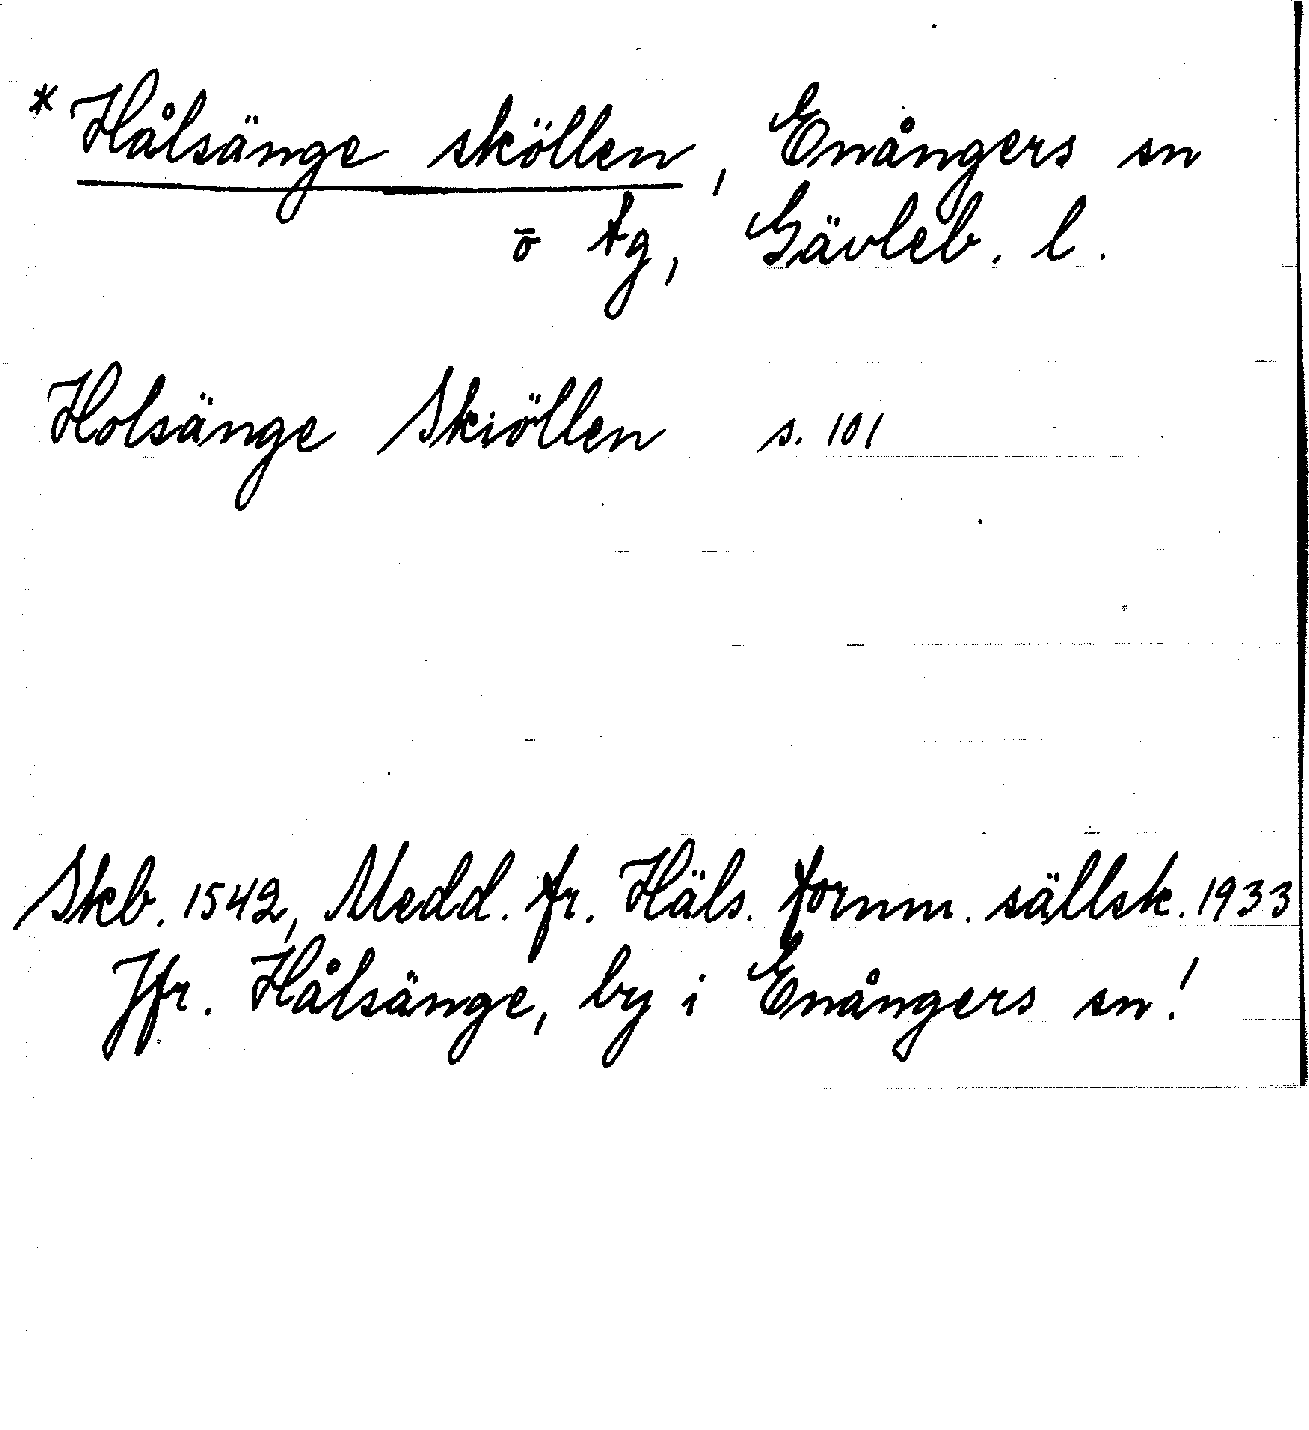 * Hålsänge sköllen, Enångers sn
ō tg, Gävleb. l.
Holsänge Skiöllen s. 101
Skb. 1542, Medd. fr. Häls. fornm. sällsk. 1933
Jfr. Hålsänge, by i Enångers sn!